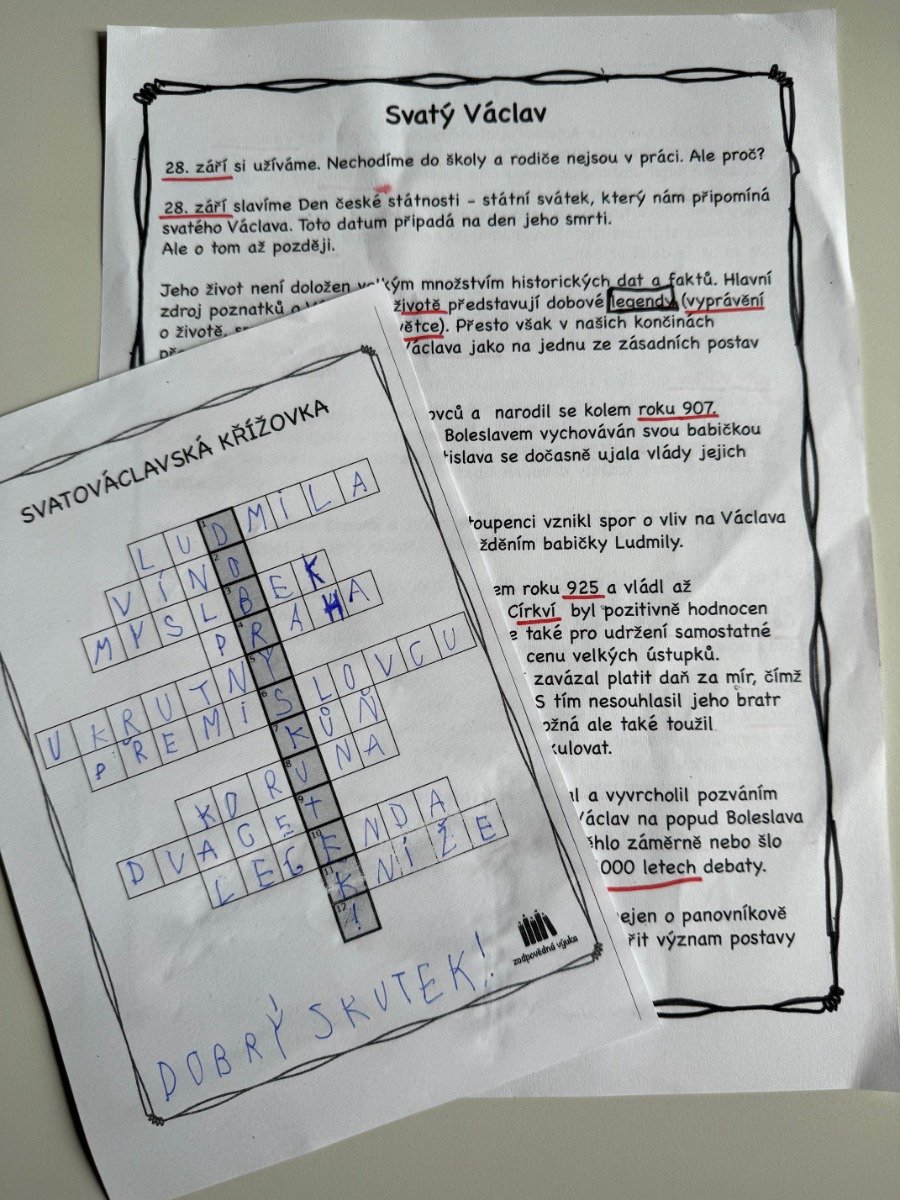 Svatý Václav
28. září si užíváme. Nechodíme do školy a rodiče nejsou v práci. Ale proč?
28. září slavíme Den české státnosti – státní svátek, který nám připomíná
svatého Václava. Toto datum připadá na den jeho smrti.
Ale o tom až později.
Jeho život není doložen velkým množstvím historických dat a faktů. Hlavní
zdroj poznatků o životě představují dobové legendy (vyprávění
o životě, světce). Přesto však v našich končinách
Václava jako na jednu ze zásadních postav
ovců a narodil se kolem roku 907.
Boleslavem vychováván svou babičkou
tislava se dočasně ujala vlády jejich
toupenci vznikl spor o vliv na Václava
žděním babičky Ludmily.
em roku 925 a vládl až
Církví byl pozitivně hodnocen
e také pro udržení samostatné
cenu velkých ústupků.
zavázal platit daň za mír, čímž
S tím nesouhlasil jeho bratr
ožná ale také toužil
kulovat.
al a vyvrcholil pozváním
Václav na popud Boleslava
ěhlo záměrně nebo šlo
000 letech debaty.
nejen o panovníkově
řit význam postavy
SVATOVÁCLAVSKÁ KŘÍŽOVKA
1 LUDMILA
2 VÍNO
3 MYSLBEK
4 PRAHA
5 UKRUTNÝ
6 PŘEMYSLOVCU
7 KŮŇ
8 KORUNA
9 DVACET
10 LEGENDA
11 KNÍŽE
12 !
zodpovědná výuka
DOBRÝ SKUTEK!